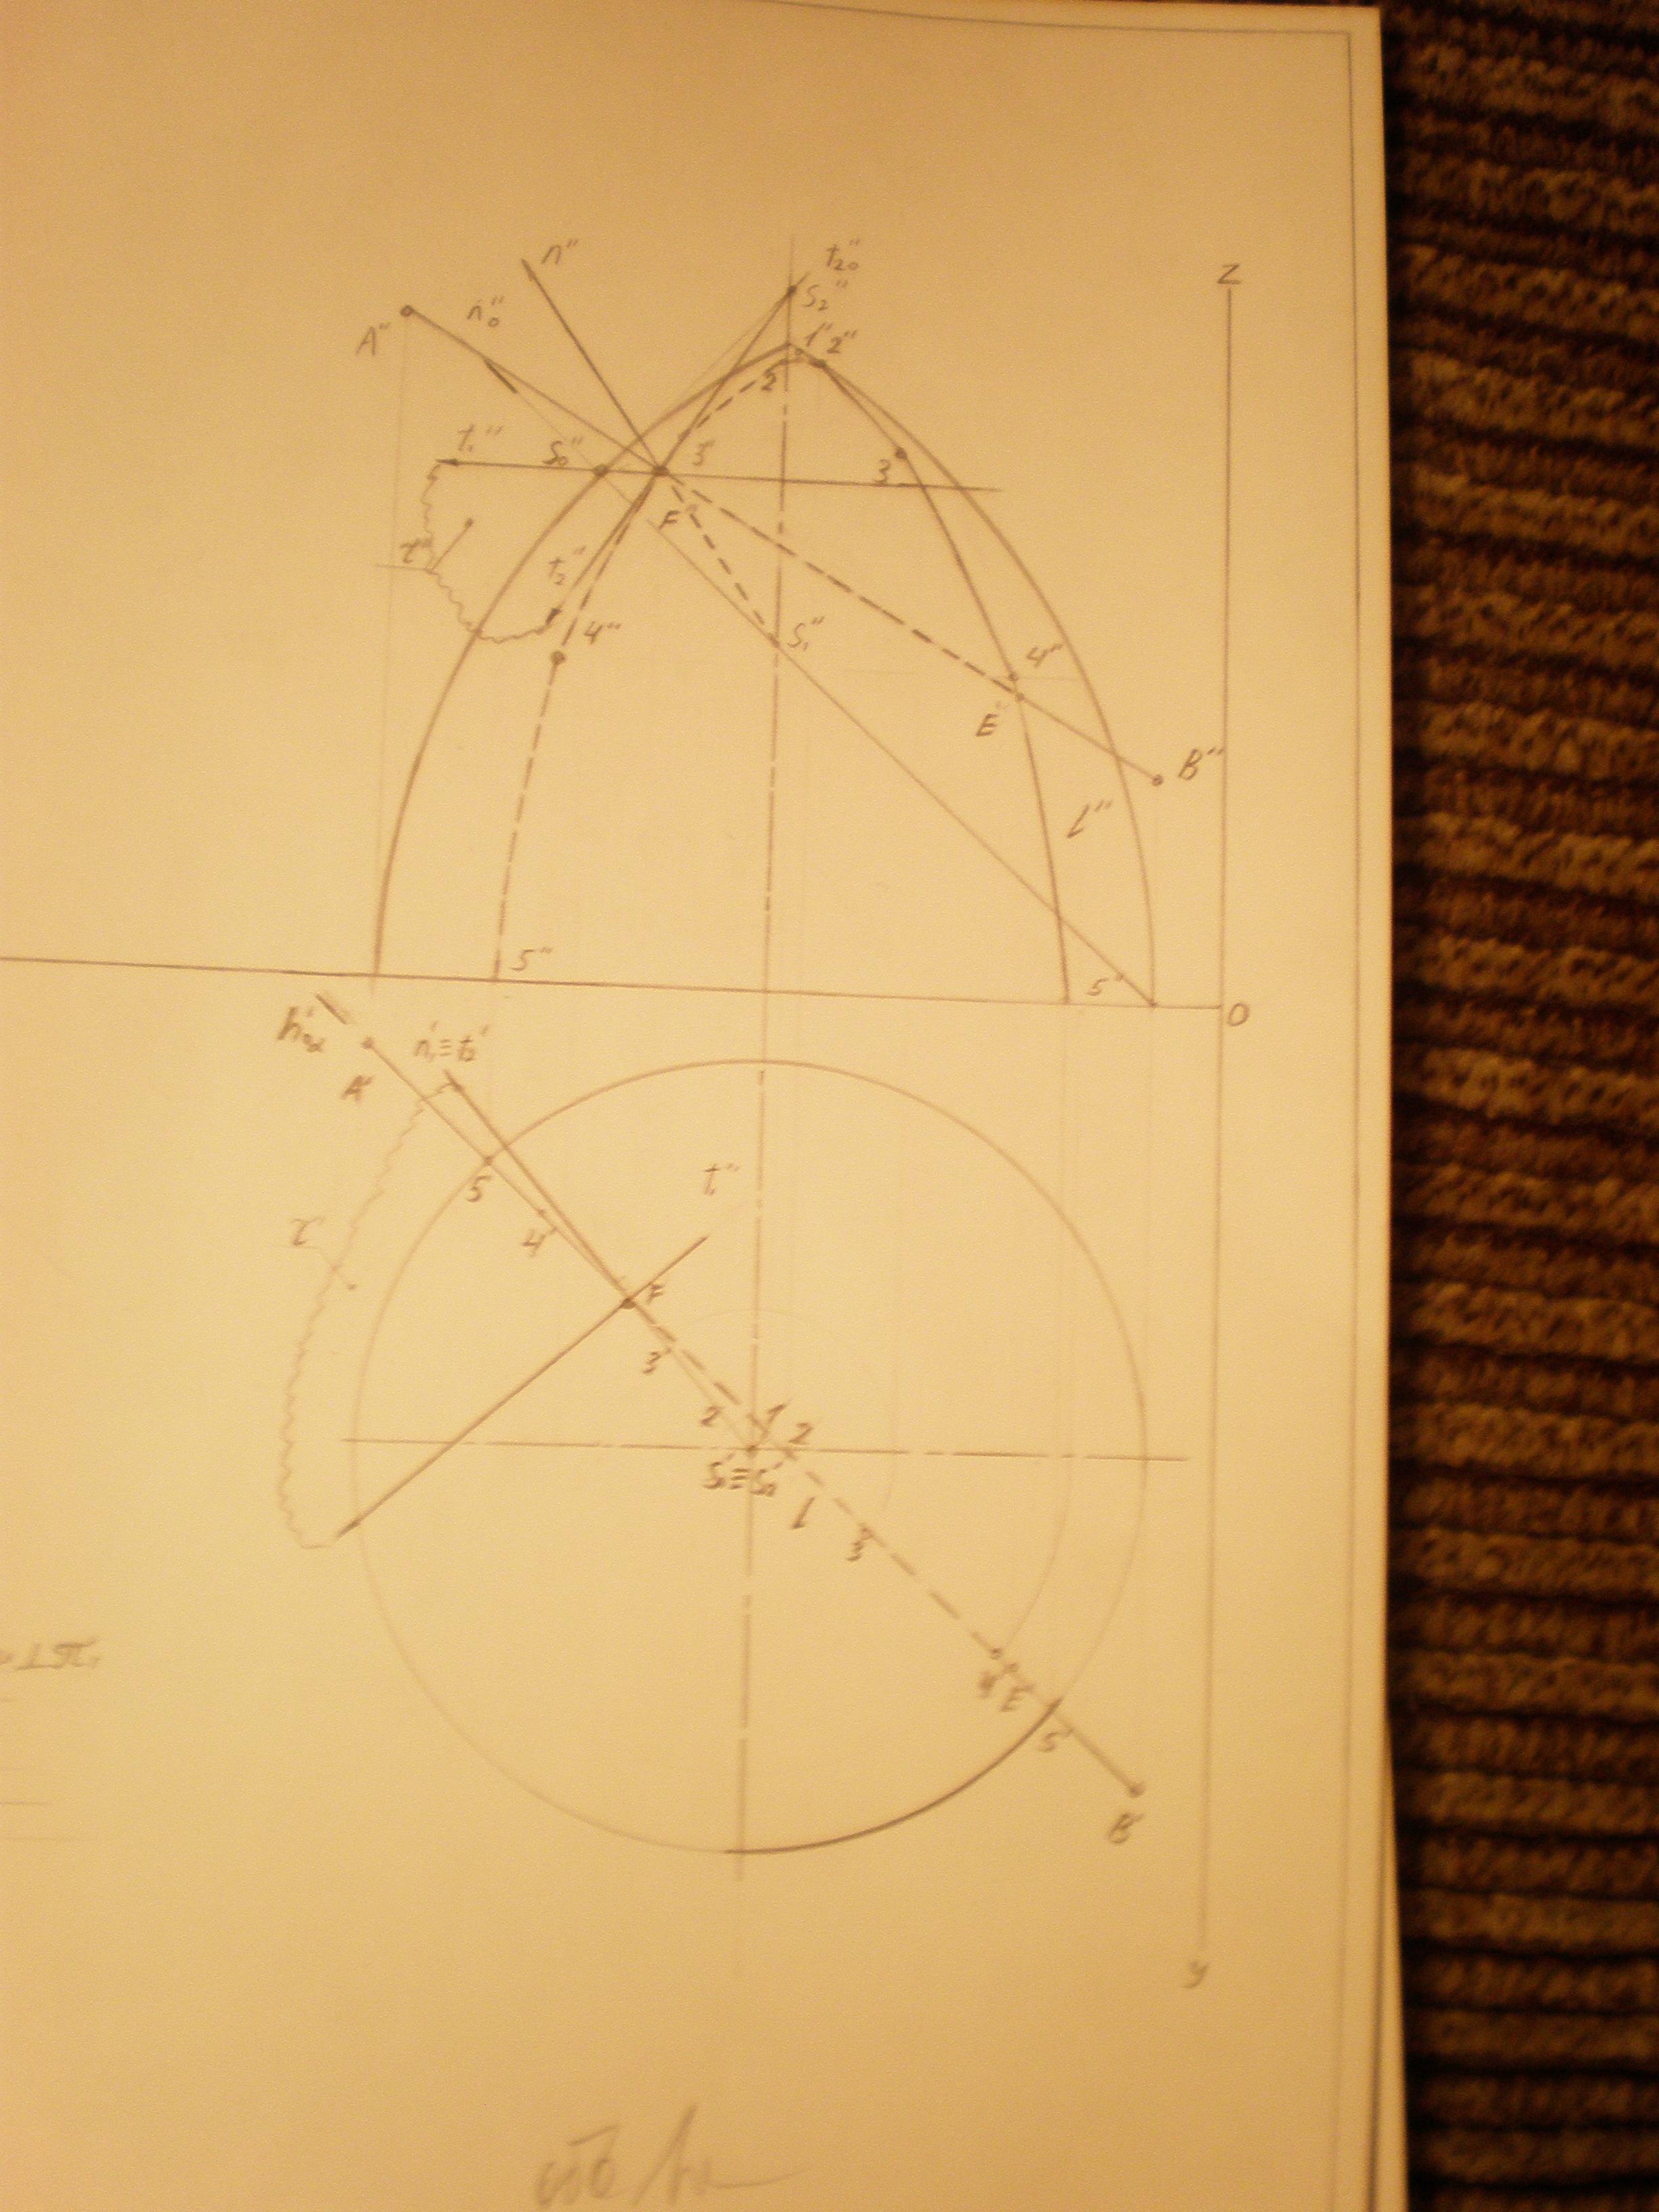 n"
t₂₀"
S₂"
Z
n₀"
A"
1" 2"
2
t₁"
S₀"
3"
3
F"
τ"
t₂"
4"
S₁"
4"
E"
B"
l"
5"
5"
O
h'₀α
n'₁≡t₂'
A'
t₁"
5'
τ'
4'
F'
3'
2 1 2
S₁'≡S₂'
l
3
4' E'
5'
B'
⊥π₁
y